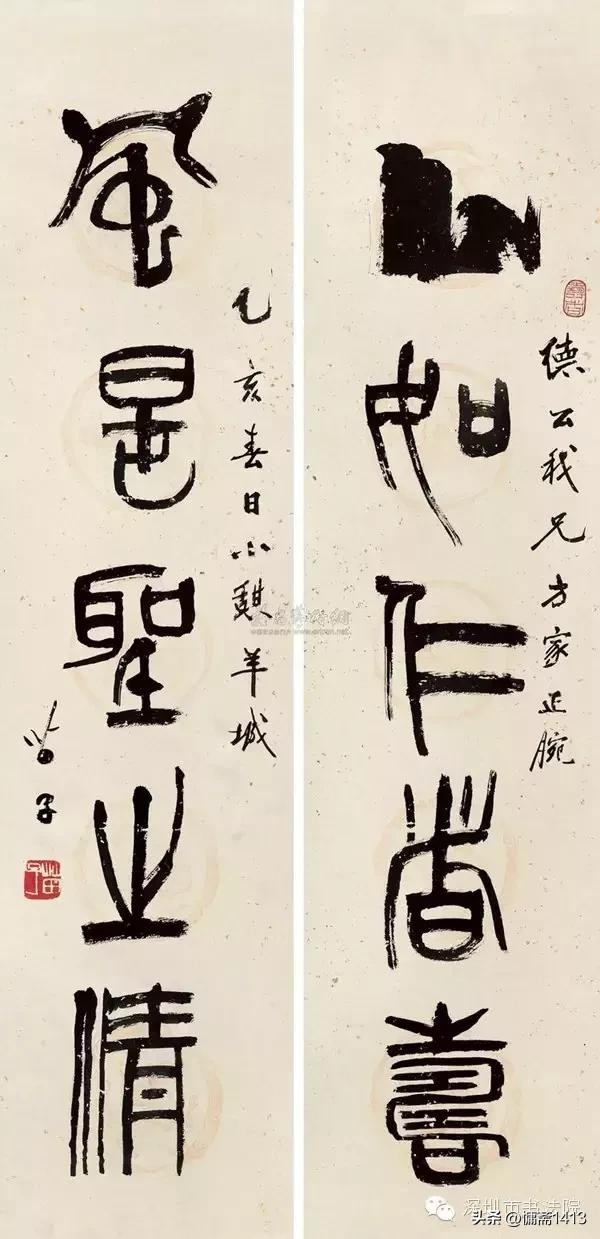 山如仁者壽
德公我兄方家正腕
風是聖之清
乙亥春日小 羊城
苗子
苗子
深圳市书法院
头条@慵斋1413